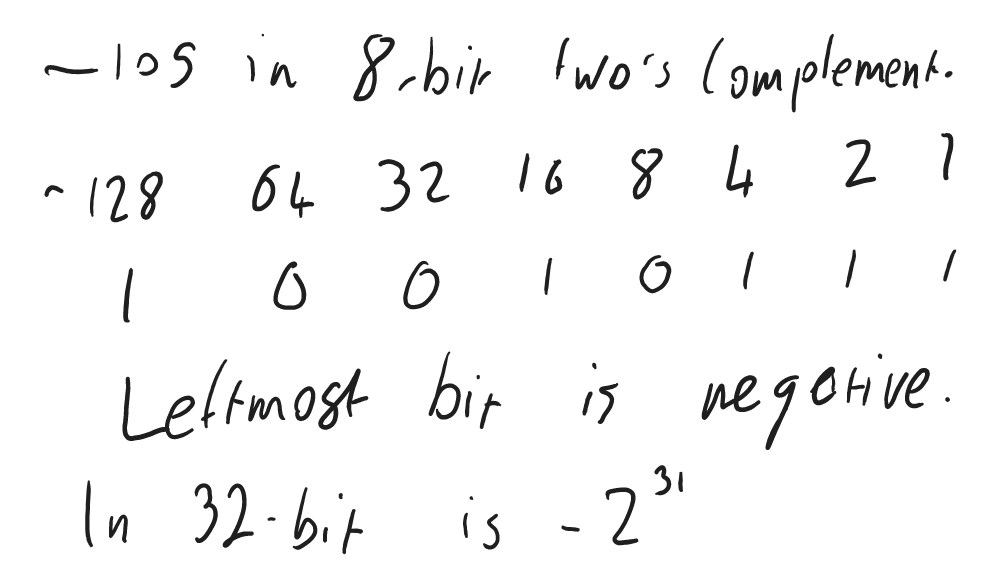 -105 in 8-bit two's complement.
-128 64 32 16 8 4 2 1
1 0 0 1 0 1 1 1
Leftmost bit is negative.
In 32-bit is -2³¹